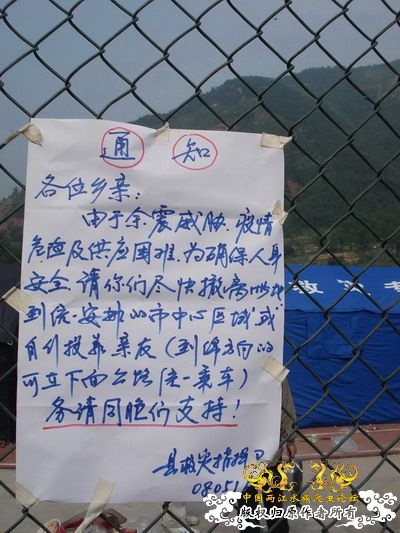 通知
各位乡亲：
由于余震威胁、疫情
危险及供应困难、为确保人身
安全请你们尽快撤离此地
到统一安排的市中心区域或
自行投养亲友（到绵方向的
可立下面公路统一乘车）
务请同胞们支持！
县救灾指挥
08051
中国两江水族爬虫论坛
版权归原作者所有